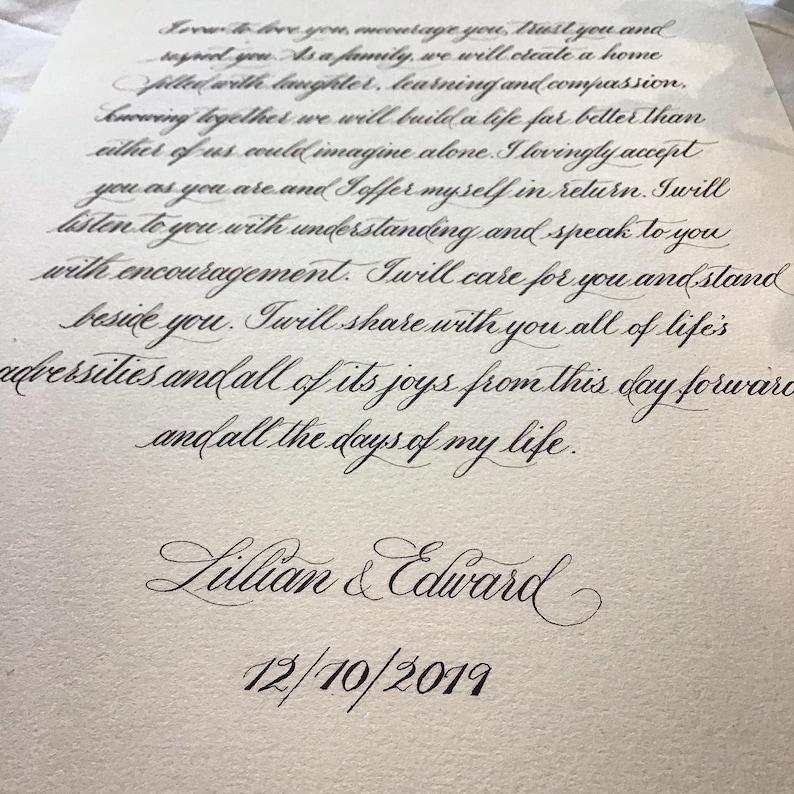 I vow to love you, encourage you, trust you and
respect you. As a family, we will create a home
filled with laughter, learning and compassion,
knowing together we will build a life far better than
either of us could imagine alone. I lovingly accept
you as you are and I offer myself in return. I will
listen to you with understanding and speak to you
with encouragement. I will care for you and stand
beside you. I will share with you all of life's
adversities and all of its joys from this day forward
and all the days of my life.
Lillian & Edward
12/10/2019